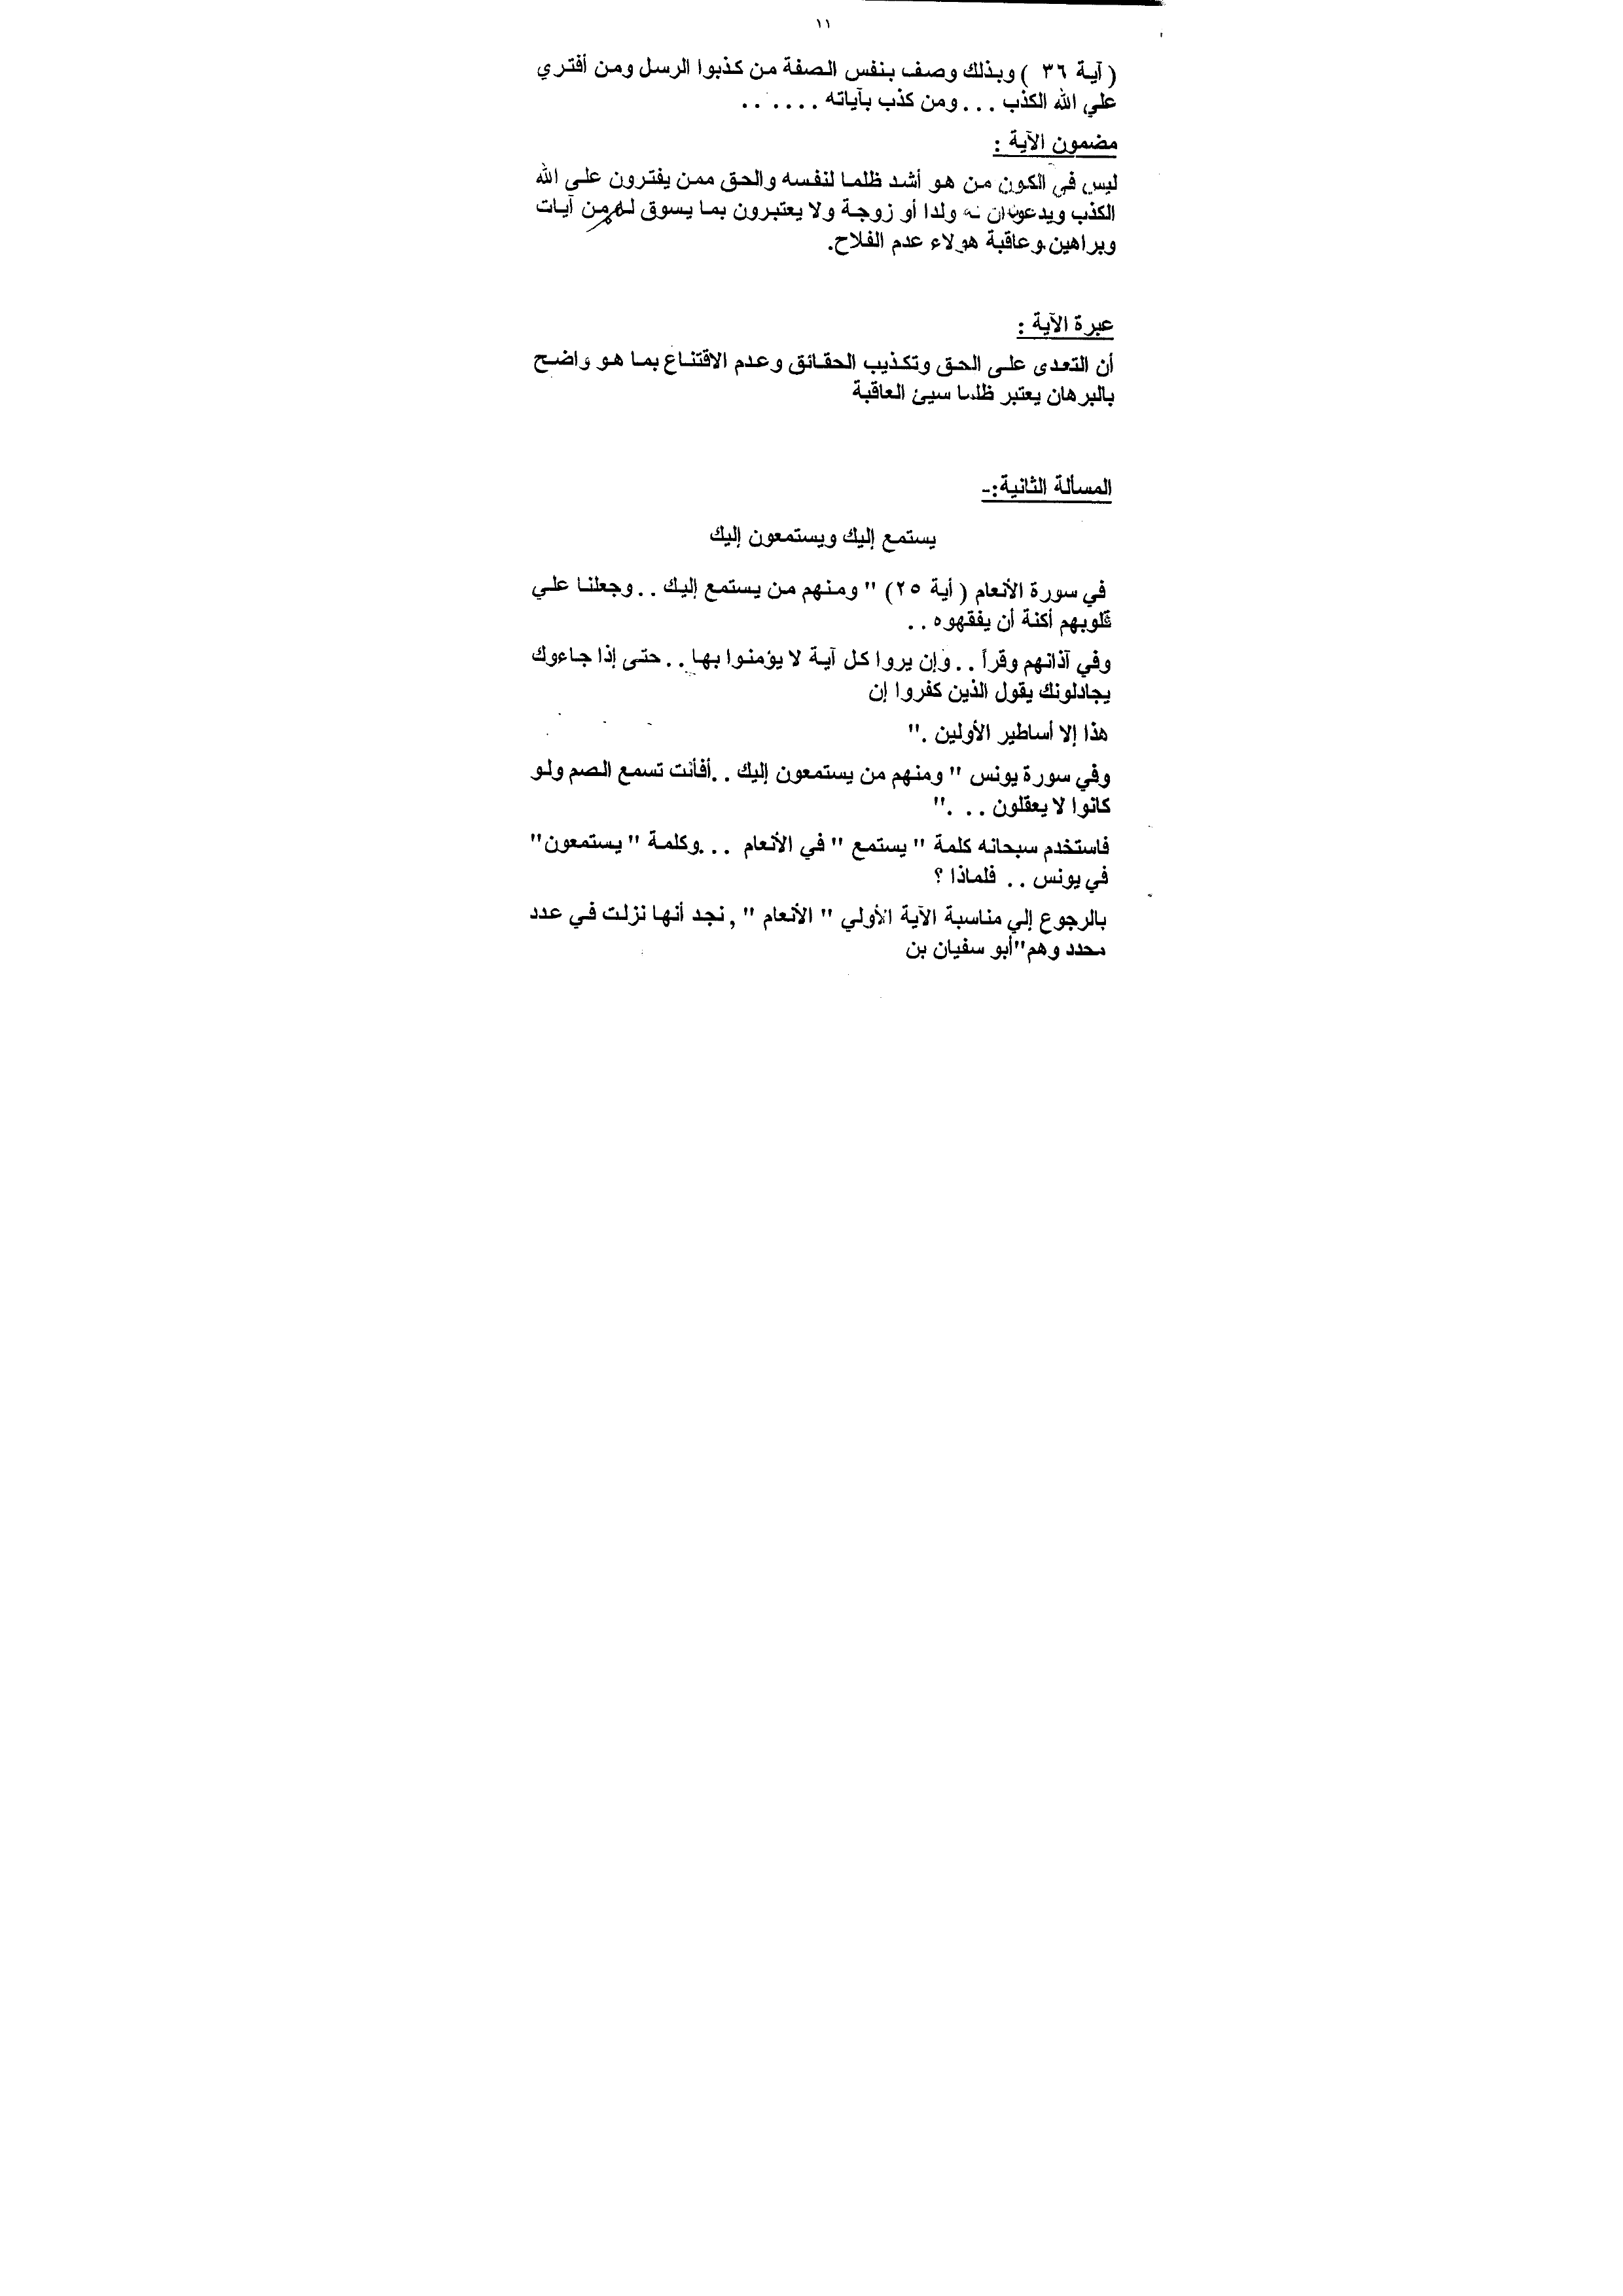 ١١
( آية ٣٦ ) وبذلك وصف بنفس الصفة من كذبوا الرسل ومن أفتري
علي الله الكذب ... ومن كذب بآياته ......
مضمون الآية :
ليس في الكون من هو أشد ظلما لنفسه والحق ممن يفترون على الله
الكذب ويدعون ان له ولدا أو زوجة ولا يعتبرون بما يسوق لهم من آيات
وبراهين.وعاقبة هولاء عدم الفلاح.
عبرة الآية :
أن التعدى على الحق وتكذيب الحقائق وعدم الاقتناع بما هو واضح
بالبرهان يعتبر ظلما سيئ العاقبة
المسألة الثانية:-
يستمع إليك ويستمعون إليك
في سورة الأنعام ( أية ٢٥) " ومنهم من يستمع إليك .. وجعلنا علي
قلوبهم أكنة أن يفقهوه ..
وفي آذانهم وقراً .. وإن يروا كل آية لا يؤمنوا بها .. حتى إذا جاءوك
يجادلونك يقول الذين كفروا إن
هذا إلا أساطير الأولين ."
وفي سورة يونس " ومنهم من يستمعون إليك ..أفأنت تسمع الصم ولو
كانوا لا يعقلون .. ."
فاستخدم سبحانه كلمة " يستمع " في الأنعام ...وكلمة " يستمعون"
في يونس .. فلماذا ؟
بالرجوع إلي مناسبة الآية الأولي " الأنعام " , نجد أنها نزلت في عدد
محدد وهم"أبو سفيان بن